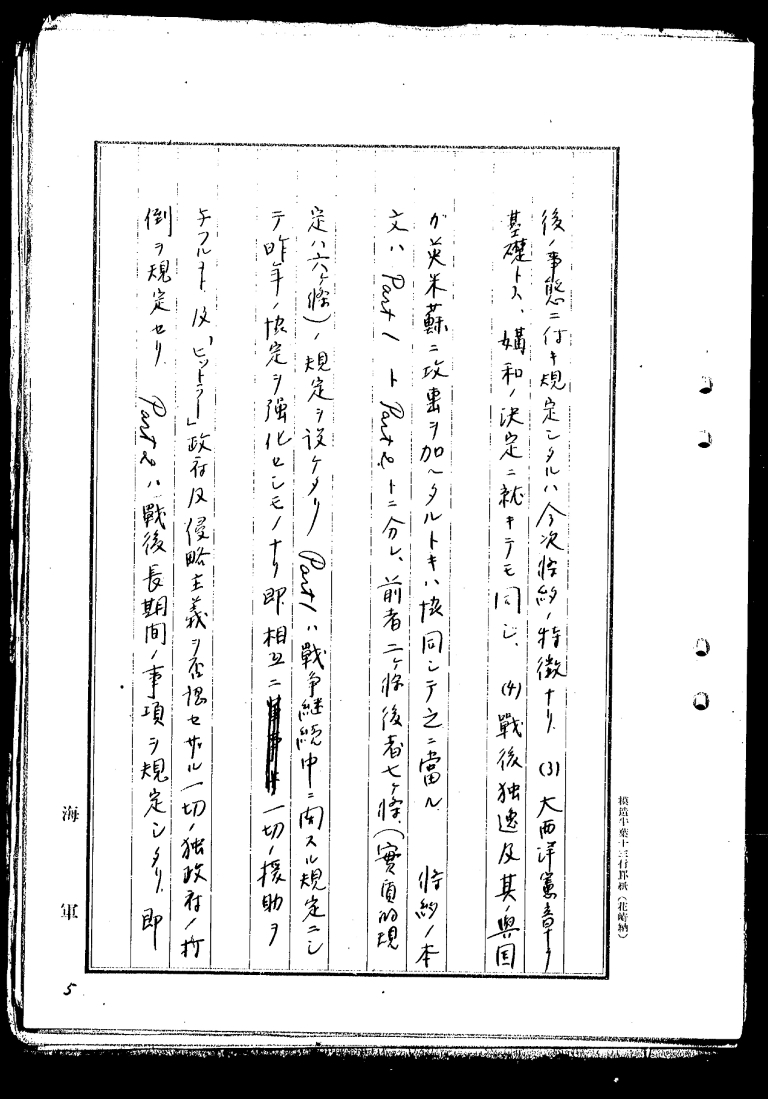 後ノ事態ニ付キ規定シタルハ今次條約ノ特徴ナリ (3) 大西洋憲章ヲ
基礎トス、媾和ノ決定ニ就キテモ同ジ、 (4) 戰後独逸及其ノ與国
ガ英米蘇ニ攻撃ヲ加ヘタルトキハ協同シテ之ニ當ル 條約ノ本
文ハ Part 1 ト Part 2 トニ分レ、前者二ヶ條後者七ヶ條（實質的規
定ハ六ヶ條）ノ規定ヲ設ケタリ Part 1 ハ戰争継続中ニ関スル規定ニシ
テ昨年ノ協定ヲ強化セシモノナリ即相互ニ一切ノ援助ヲ
与フルコト及「ヒットラー」政府及侵略主義ヲ否認セザル一切ノ独政府ノ打
倒ヲ規定セリ Part 2 ハ戰後長期間ノ事項ヲ規定シタリ 即
海軍
5
模造半葉十三行罫紙（花崎納）